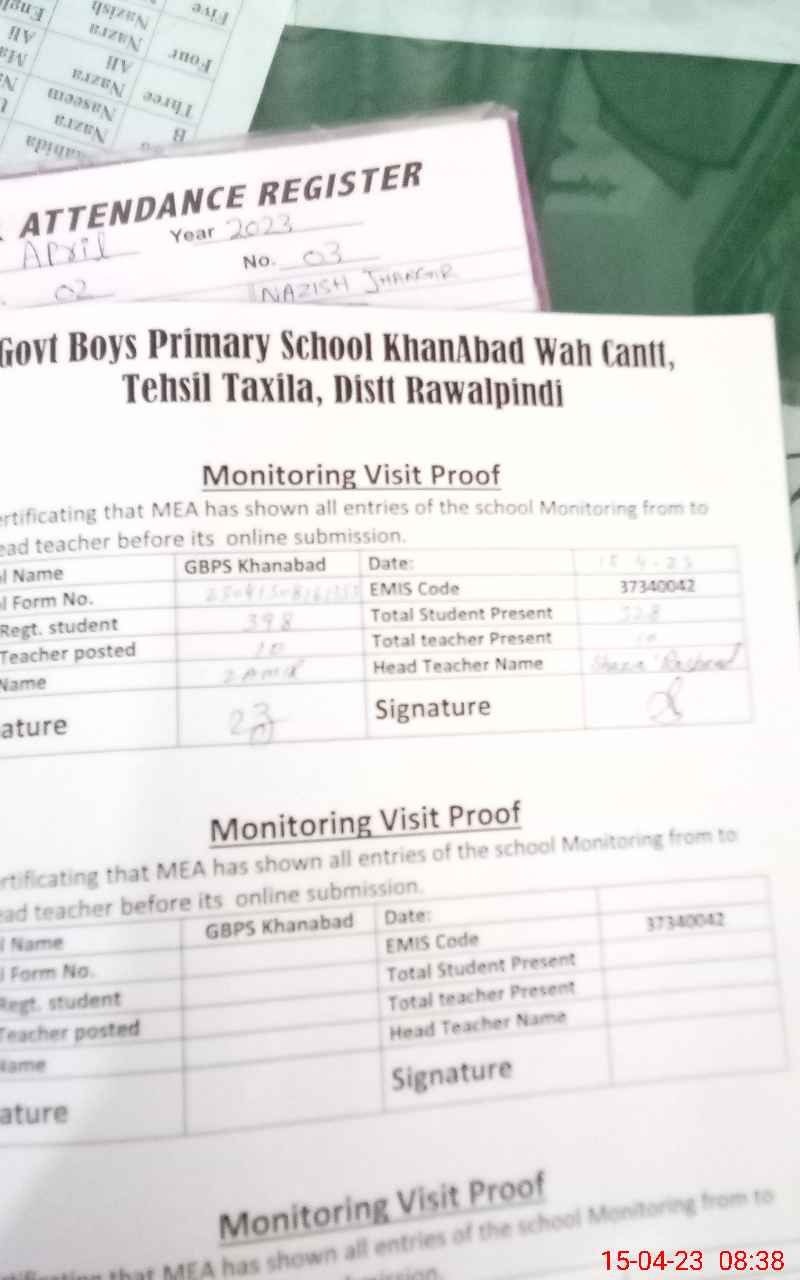 Five Nazish
Four Nazra Ali
Ali
Three Nazra
Naseem
B Nazra
ATTENDANCE REGISTER
April Year 2023
No. 03
02 NAZISH
Govt Boys Primary School KhanAbad Wah Cantt,
Tehsil Taxila, Distt Rawalpindi
Monitoring Visit Proof
ertificating that MEA has shown all entries of the school Monitoring from to
ead teacher before its online submission.
l Name GBPS Khanabad Date: 15-4-23
l Form No. EMIS Code 37340042
Regt. student 398 Total Student Present 328
Teacher posted 10 Total teacher Present 10
Name Head Teacher Name
ature Signature
Monitoring Visit Proof
ertificating that MEA has shown all entries of the school Monitoring from to
ead teacher before its online submission.
l Name GBPS Khanabad Date:
l Form No. EMIS Code 37340042
Regt. student Total Student Present
Teacher posted Total teacher Present
Name Head Teacher Name
ature Signature
Monitoring Visit Proof
tificating that MEA has shown all entries of the school Monitoring from to
15-04-23 08:38